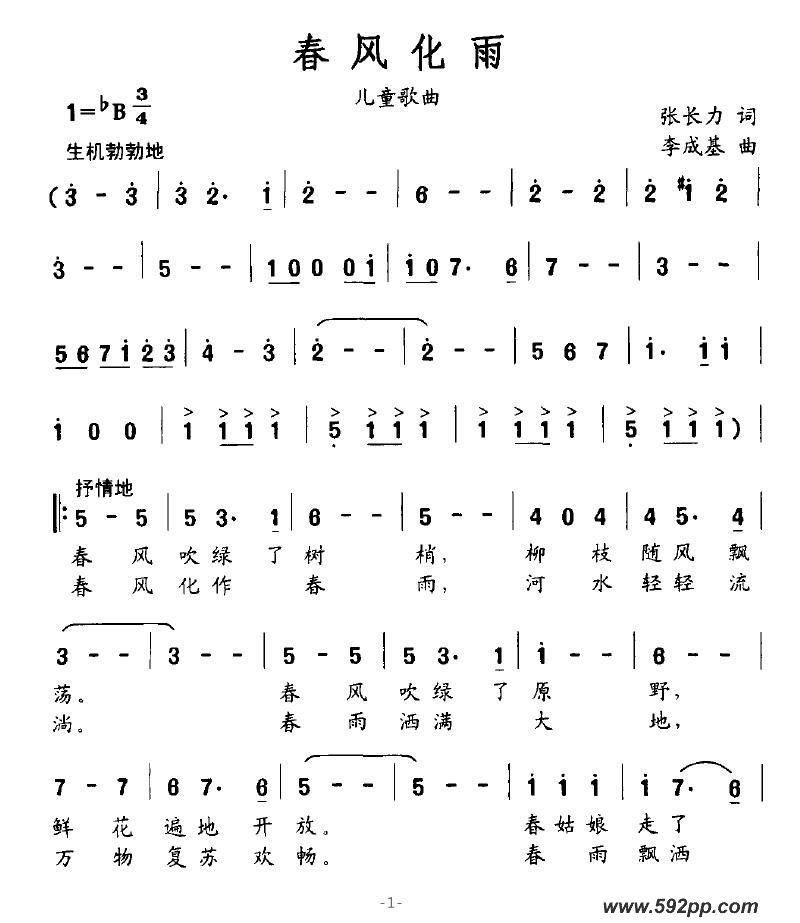 春风化雨
儿童歌曲
1=♭B 3/4
张长力 词
生机勃勃地
李成基 曲
(3̇ - 3̇ | 3̇ 2̇· 1̇ | 2̇ - - | 6 - - | 2̇ - 2̇ | 2̇ #1̇ 2̇ |
3̇ - - | 5 - - | 100 01̇ | 1̇07· 6 | 7 - - | 3 - - |
56 71̇ 2̇3̇ | 4̇ - 3̇ | 2̇ - - | 2̇ - - | 5 6 7 | 1̇· 1̇1̇ |
1̇ 0 0 | 1 11 1 | 5̣ 11 1 | 1 11 1 | 5̣ 11 1) |
抒情地
‖: 5 - 5 | 5 3· 1 | 6 - - | 5 - - | 4 0 4 | 4 5· 4 |
春 风 吹 绿 了 树 梢， 柳 枝 随 风 飘
春 风 化 作 春 雨， 河 水 轻 轻 流
3 - - | 3 - - | 5 - 5 | 5 3· 1 | 1̇ - - | 6 - - |
荡。 春 风 吹 绿 了 原 野，
淌。 春 雨 洒 满 大 地，
7 - 7 | 6 7· 6 | 5 - - | 5 - - | 1̇ 1̇ 1̇ | 1̇ 7· 6 |
鲜 花 遍 地 开 放。 春 姑 娘 走 了
万 物 复 苏 欢 畅。 春 雨 飘 洒
-1-
www.592pp.com